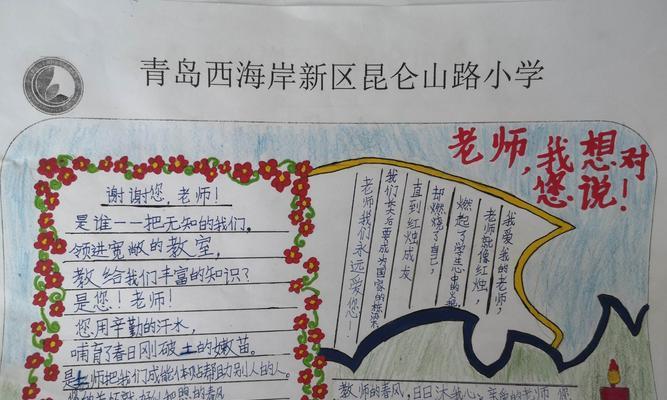 青岛西海岸新区昆仑山路小学
老师，我想对
您说！
谢谢您，老师！
是谁——把无知的我们，
领进宽敞的教室，
教给我们丰富的知识？
是您！老师！
您用辛勤的汗水，
哺育了春日刚破土的嫩苗。
是土师把我们成能体贴帮助别人的人。
我爱我的老师，
老师就像红烛，
燃起了学生心中的火
却燃烧了自己，
直到红烛成灰
我们长大后要成为国家的栋梁
老师我们永远爱您！
教师的春风，日日沐我心